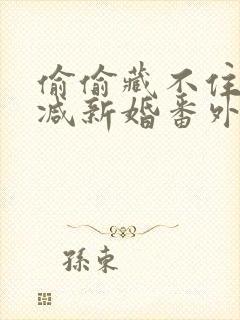 偷偷藏不住
减新婚番外
孫東